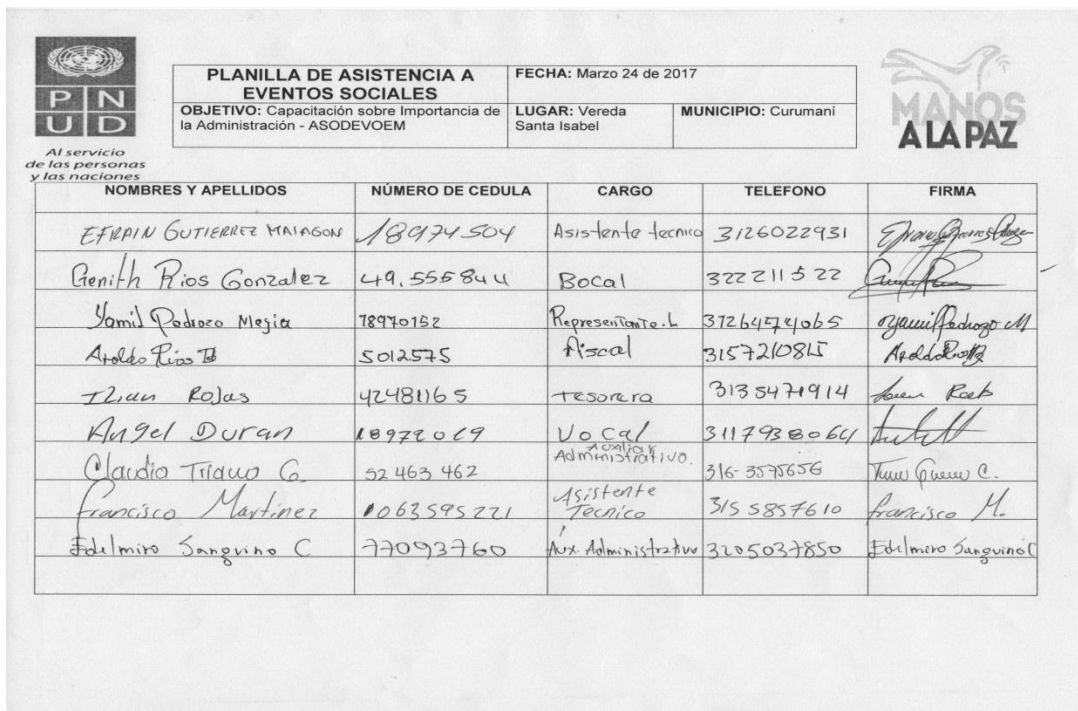 PNUD
Al servicio
de las personas
y las naciones
PLANILLA DE ASISTENCIA A
EVENTOS SOCIALES
FECHA: Marzo 24 de 2017
OBJETIVO: Capacitación sobre Importancia de
la Administración - ASODEVOEM
LUGAR: Vereda
Santa Isabel
MUNICIPIO: Curumaní
MANOS
A LA PAZ
NOMBRES Y APELLIDOS NÚMERO DE CEDULA CARGO TELEFONO FIRMA
EFRAIN GUTIERREZ MALAGON 18974504 Asistente tecnico 3126022931
Genith Rios Gonzalez 49.555844 Bocal 322211522
Yamil Pedrozo Mejia 18970152 Representante.L Yamil Pedrozo M
Aroldo Rios 5012575 fiscal
Rojas 42481165 Tesorera 3135471914
Angel Duran 18972069 Vocal 3117938064
Claudia G. 52 463 462 Auxiliar
Administrativo. 316-3575656
Francisco Martinez 1063595221 Asistente
Tecnico 315 5857610 francisco M.
Edelmiro Sanguino C 77093760 Aux. Administrativo 3205037850 Edelmiro Sanguino C